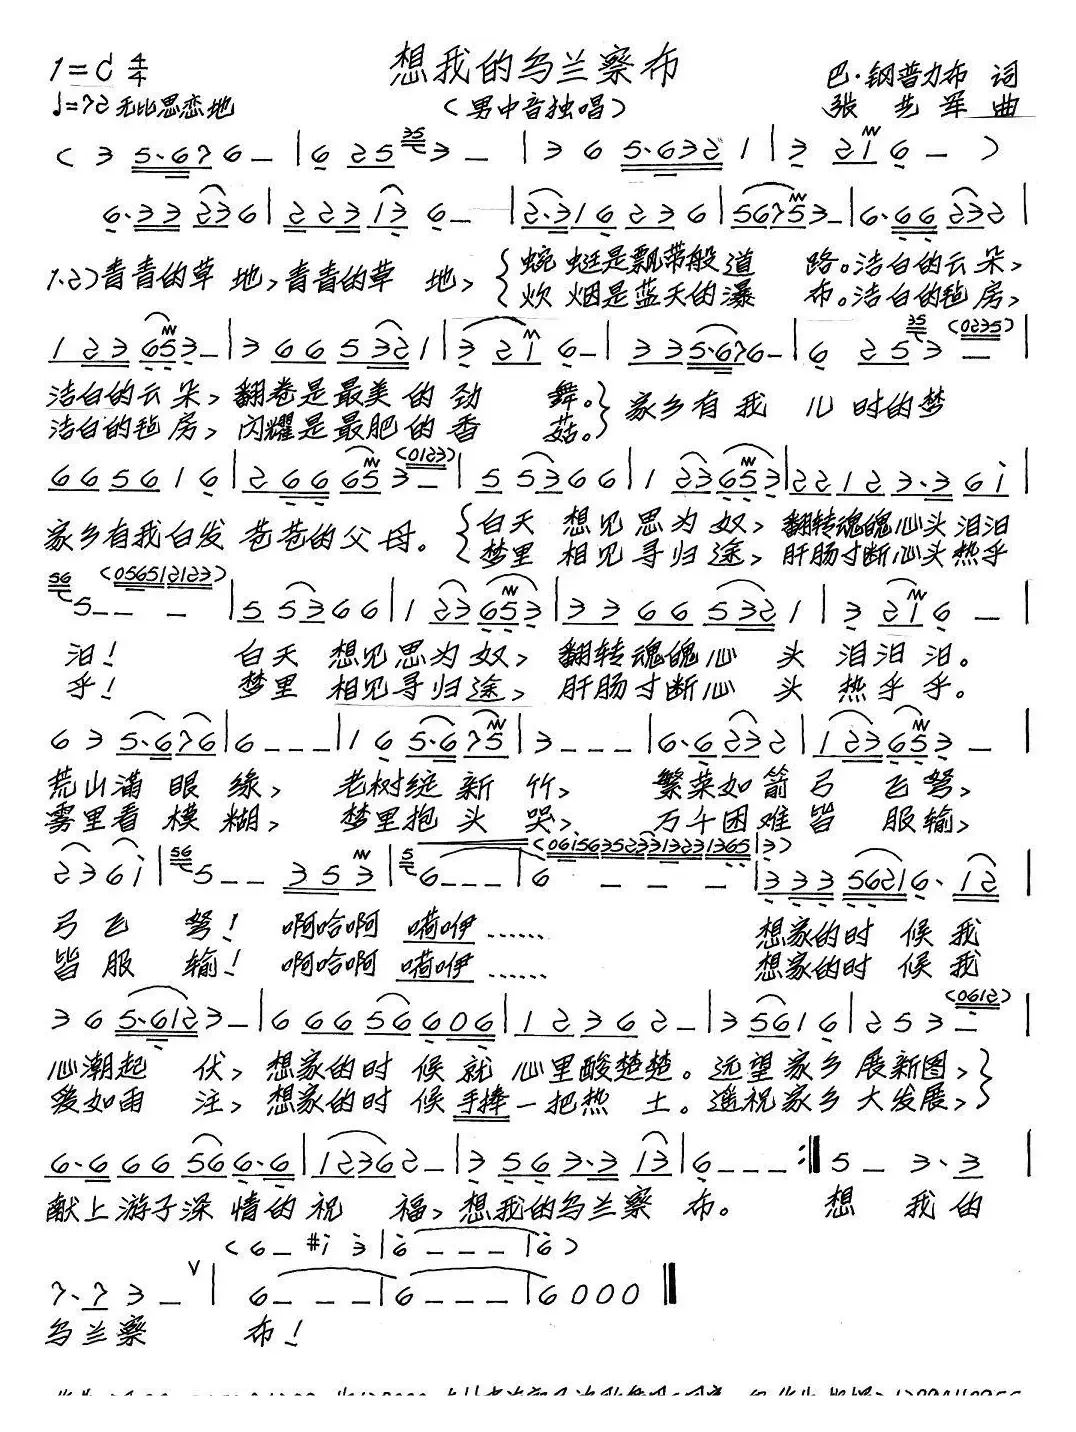 想我的乌兰察布
1=C 4/4
(男中音独唱)
巴·钢普力布 词
♩=72 无比思恋地
张艺军 曲
( 3 5·676 — | 6 25 35 3 — | 3 6 5·632 1 | 3 21 6 — )
6·33 236 | 223 13 6 — | 2·316 236 | 56753 — | 6·66 232 |
1.2)青青的草 地,青青的草 地, { 蜿蜒是飘带般道 路。洁白的云朵,
炊烟是蓝天的瀑 布。洁白的毡房,
123 653 — | 3 66 5321 | 3 21 6 — | 335·676 — | 6 25 35 3 (0235) — |
洁白的云朵,翻卷是最美的劲 舞。} 家乡有我 儿时的梦
洁白的毡房,闪耀是最肥的香 菇。
665616 | 266653 (0123) — | 55366 | 123653 | 22123·361 |
家乡有我白发苍苍的父母。 { 白天 想见思为奴,翻转魂魄心头泪汩
梦里 相见寻归途,肝肠寸断心头热乎
56 5 — — (056512123) — | 55366 | 123653 | 33665321 | 3 21 6 — |
汩! 白天 想见思为奴, 翻转魂魄心 头 泪汩汩。
乎! 梦里 相见寻归途, 肝肠寸断心 头 热乎乎。
6 3 5·676 | 6 — — — | 16 5·675 | 3 — — — | 6·6232 | 123653 — |
荒山满 眼 缘, 老树绽 新 竹, 繁菜如箭弓 飞弩,
雾里看 模 糊, 梦里抱 头 哭, 万千困难皆 服输,
2361 | 56 5 — — 353 | 5 6 — — — | 6 — — — (061563523313231365 | 3) 33356216·12 |
弓飞 弩! 啊哈啊 嗬咿…… 想家的时 候我
皆服 输! 啊哈啊 嗬咿…… 想家的时 候我
36 5·6123 — | 66656606 | 12362 — | 35616 | 253 (0612) — |
心潮起 伏, 想家的时 候就 心里酸楚楚。远望家乡 展新图, }
爱如雨 注, 想家的时 候手捧一把热 土。遥祝家乡 大发展,
6·666566·6 | 12362 — | 3563·313 | 6 — — — :‖ 5 — 3·3 |
献上游子深 情的祝 福,想我的乌兰察 布。 想 我的
( 6 — #1 3 | 6 — — — | 6 )
7·73 — ∨ | 6 — — — | 6 — — — | 6000 ‖
乌兰察 布!